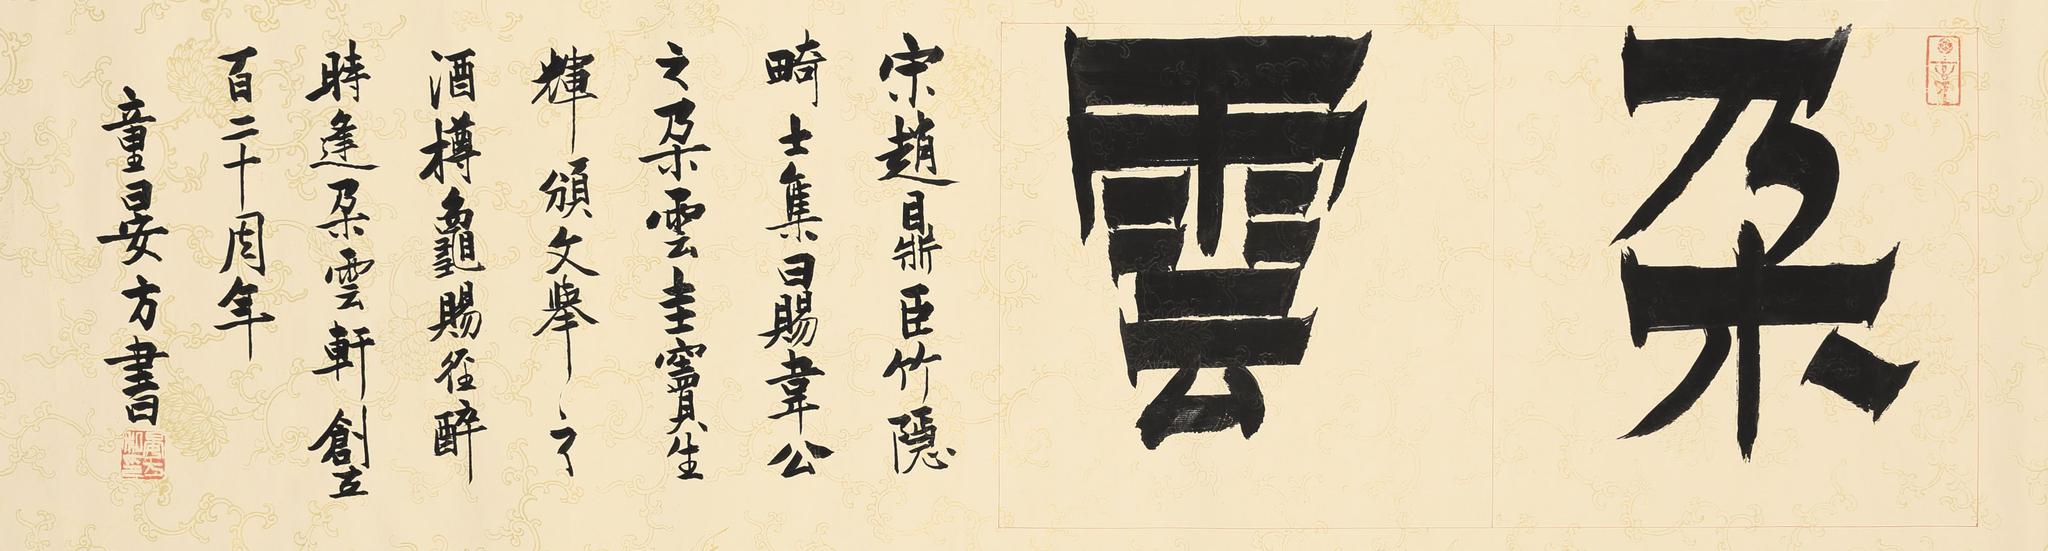 朵雲
宋趙鼎臣竹隱
畸士集曰賜韋公
之朵雲圭竇生
輝頒文舉之
酒樽龜腸徑醉
時逢朵雲軒創立
百二十周年
童晏方書